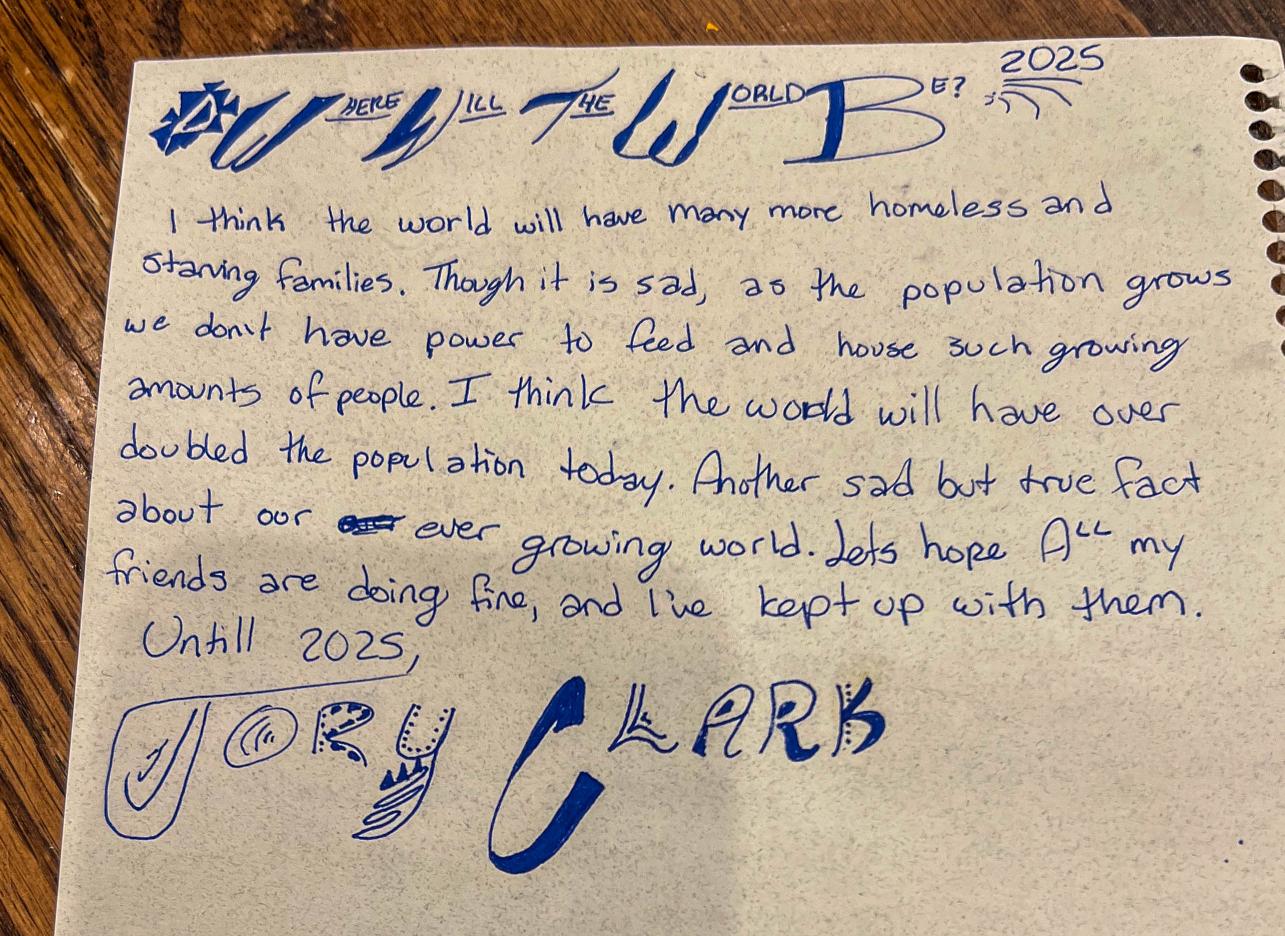 Where Will The World Be? 2025
I think the world will have many more homeless and
starving families. Though it is sad, as the population grows
we don't have power to feed and house such growing
amounts of people. I think the world will have over
doubled the population today. Another sad but true fact
about our ever growing world. Lets hope All my
friends are doing fine, and I've kept up with them.
Untill 2025,
Jory Clark